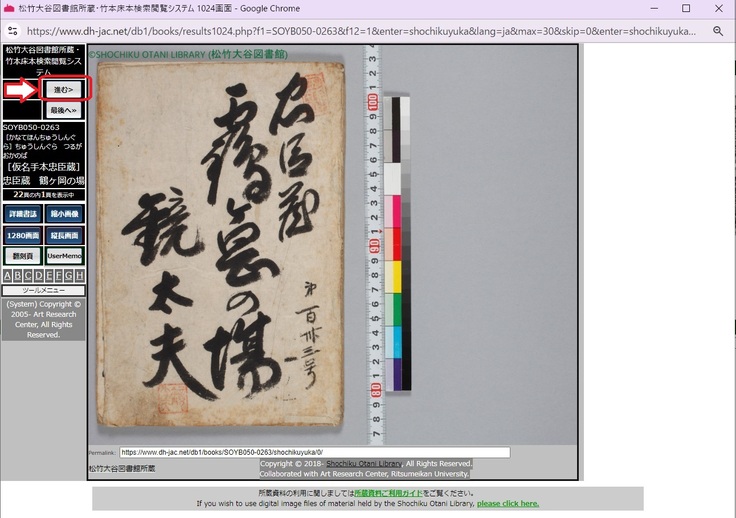 松竹大谷図書館所蔵・竹本床本検索閲覧システム 1024画面 - Google Chrome
https://www.dh-jac.net/db1/books/results1024.php?f1=SOYB050-0263&f12=1&enter=shochikuyuka&lang=ja&max=30&skip=0&enter=shochikuyuka...
松竹大谷図書館所蔵・
竹本床本検索閲覧シス
テム
進む>
最後へ»
SOYB050-0263
[かなてほんちゅうしんぐ
ら] ちゅうしんぐら つるが
おかのば
[仮名手本忠臣蔵]
忠臣蔵 鶴ヶ岡の場
22頁の内1頁を表示中
詳細書誌 縮小画像
1280画面 縦長画面
翻刻頁 UserMemo
A B C D E F G H
ツールメニュー
(System) Copyright ©
2005- Art Research
Center, All Rights
Reserved.
©SHOCHIKU OTANI LIBRARY (松竹大谷図書館)
忠臣蔵
鶴ヶ岡の場
鏡太夫
第百卅三号
Permalink: https://www.dh-jac.net/db1/books/SOYB050-0263/shochikuyuka/0/
松竹大谷図書館所蔵
Copyright © 2018- Shochiku Otani Library, All Rights Reserved.
Collaborated with Art Research Center, Ritsumeikan University.
所蔵資料の利用に関しましては所蔵資料ご利用ガイドをご覧ください。
If you wish to use digital image files of material held by the Shochiku Otani Library, please click here.